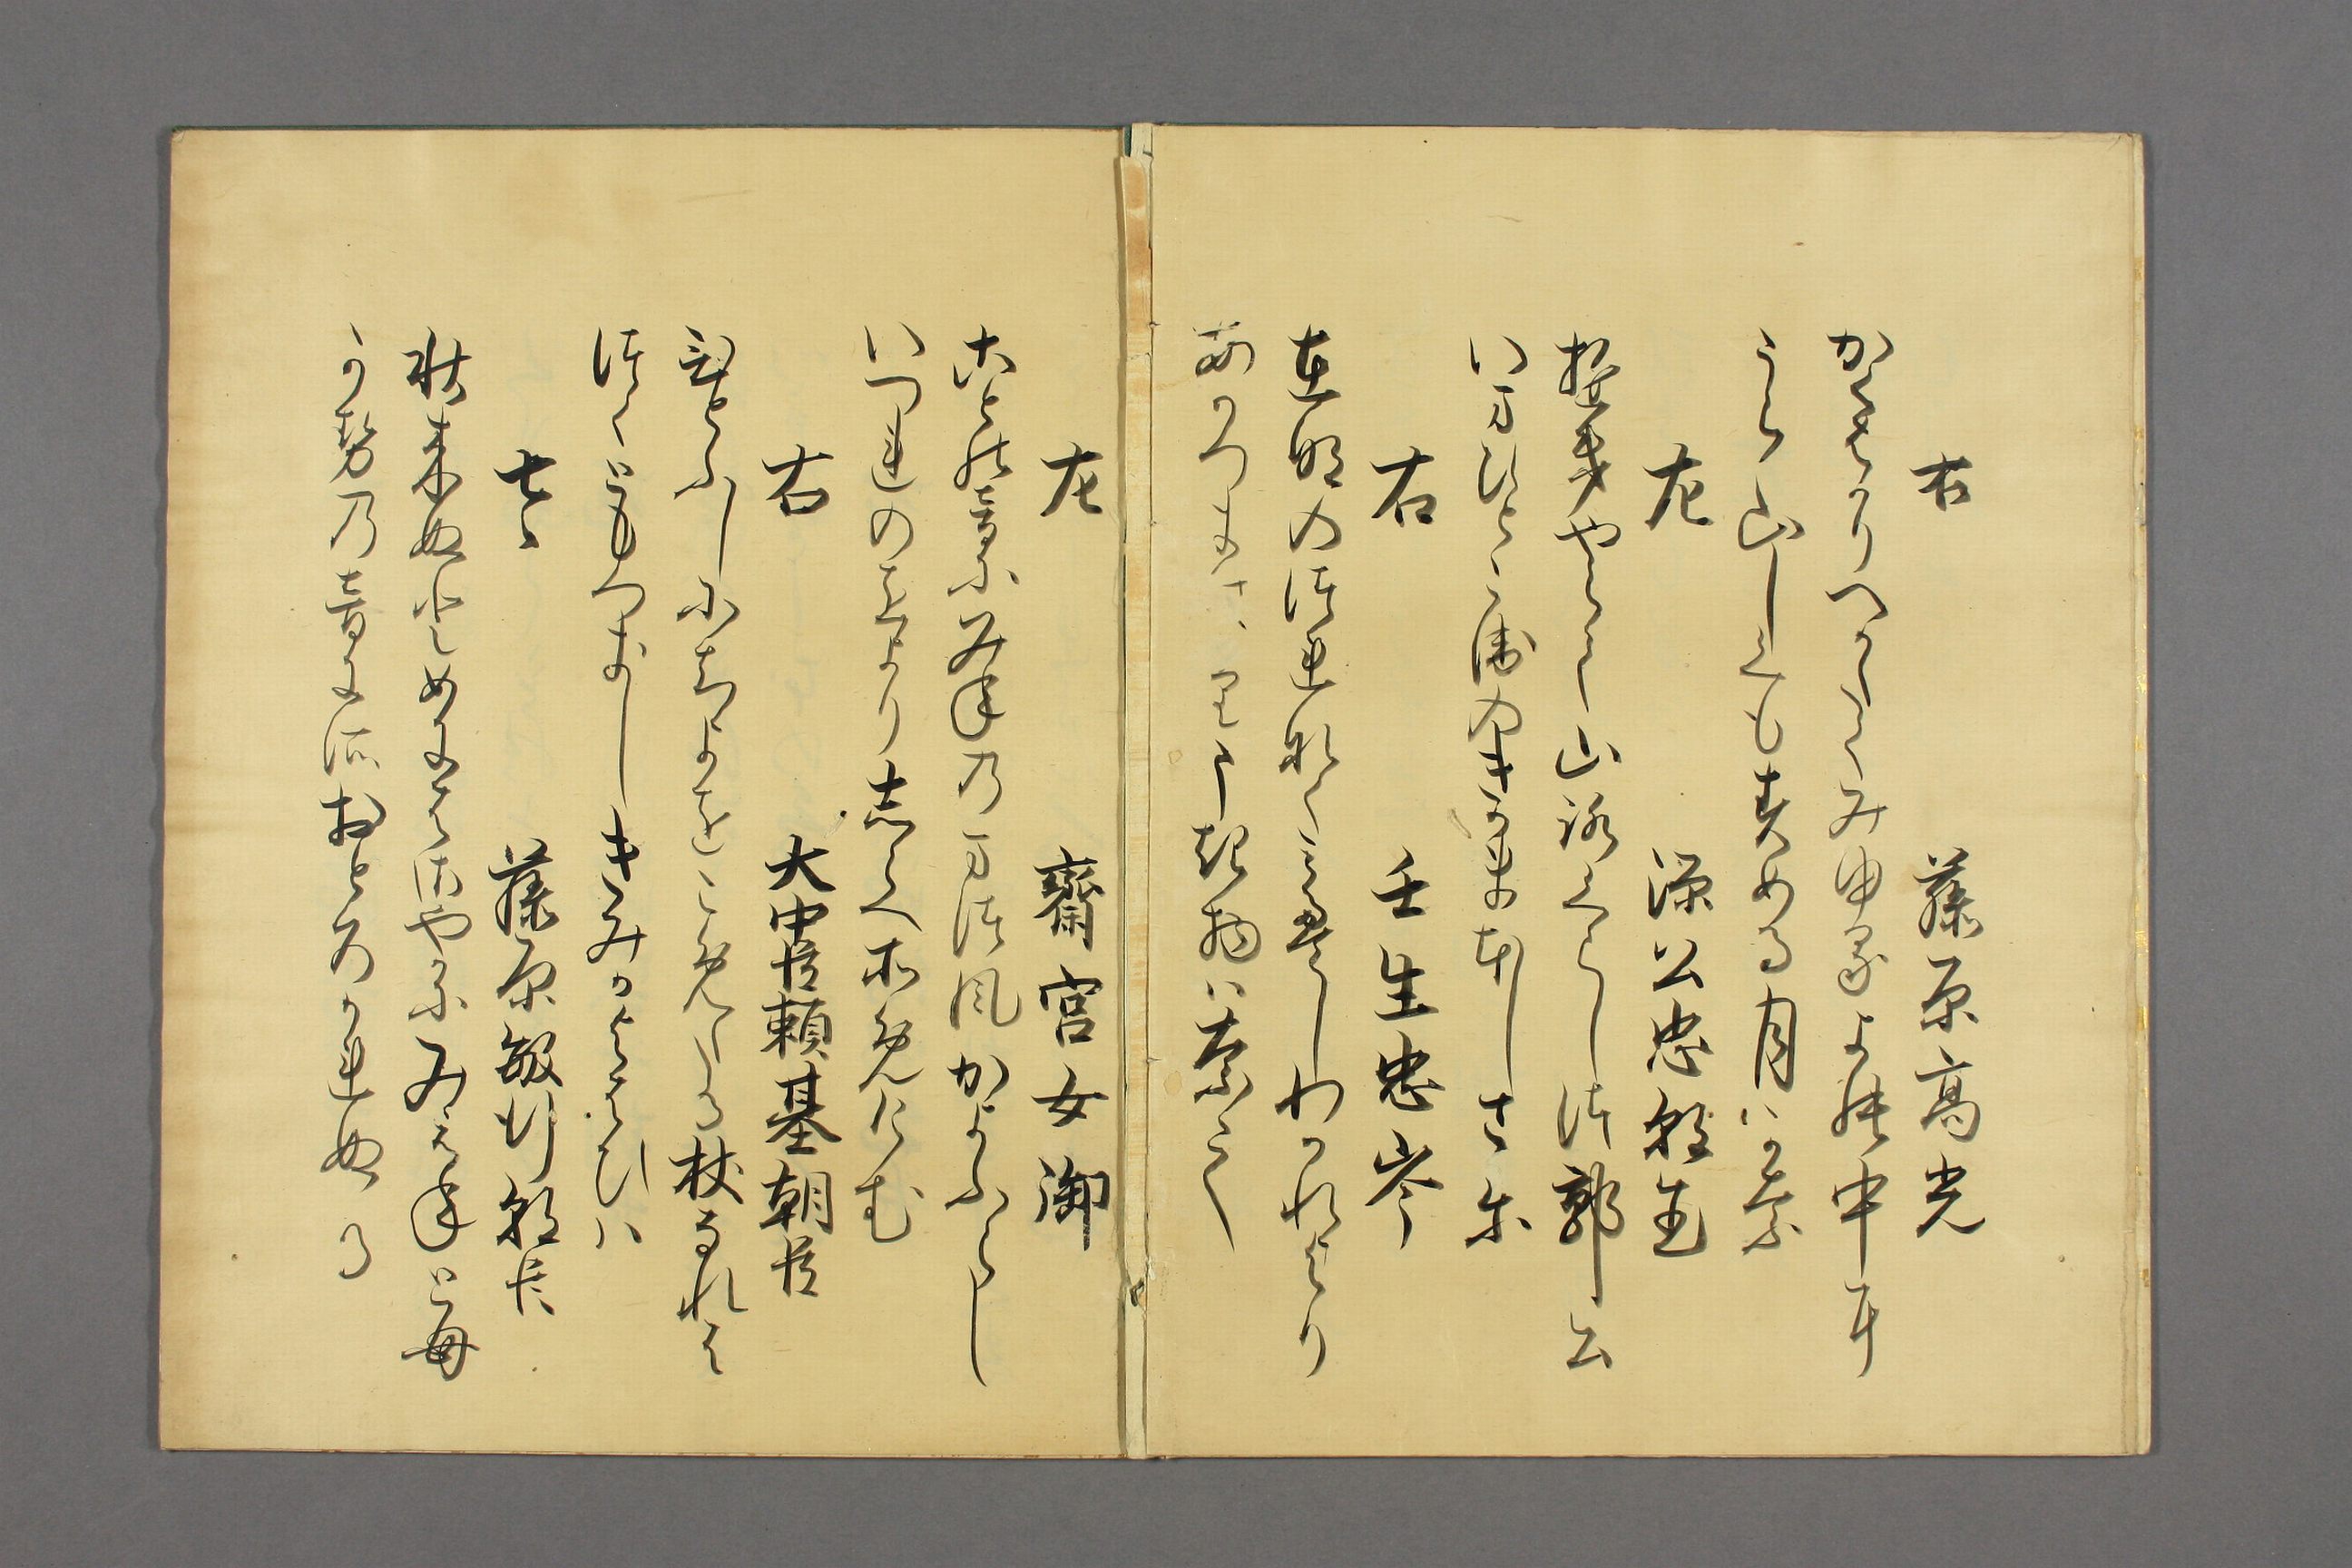 右　藤原高光
かくはかりへかたくみゆる世中に
うら山しくもすめる月かな
左　源公忠朝臣
行やらて山路くらしつ郭公
いまひとこゑのきかまほしさに
右　壬生忠岑
在明のつれなくみえしわかれより
あかつきはかりうき物はなし
左　齋宮女御
ことの音にみねの万つ風かよふらし
いつれのをよりしらへそめけむ
右　大中臣頼基朝臣
ひとふしにちよをこめたる杖なれは
つくともつきしきみかよはひは
左　藤原敏行朝臣
秋来ぬとめにはさやかにみえねとも
かせの音にそおとろかれぬる